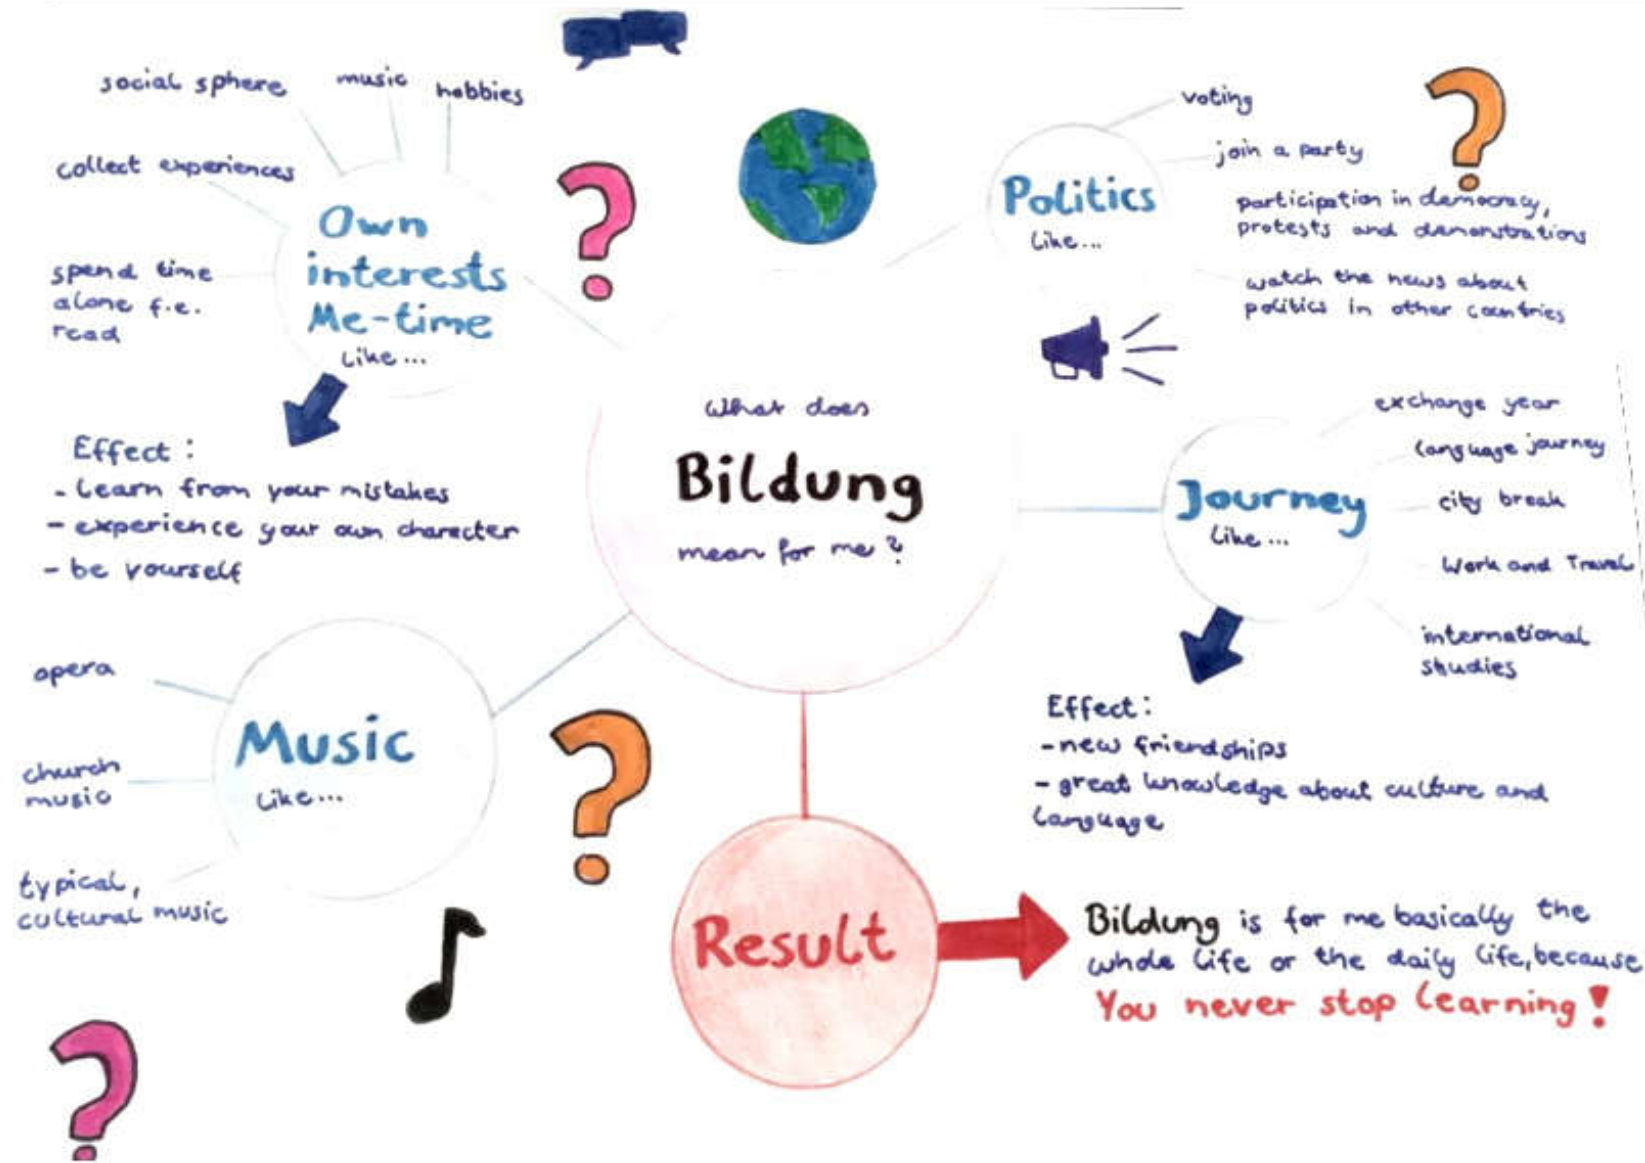 What does
Bildung
mean for me?
Own
interests
Me-time
like...
social sphere
music
hobbies
collect experiences
spend time
alone f.e.
read
Effect:
- learn from your mistakes
- experience your own character
- be yourself
Politics
like...
voting
join a party
participation in democracy,
protests and demonstrations
watch the news about
politics in other countries
Journey
like...
exchange year
language journey
city break
Work and Travel
international
studies
Effect:
- new friendships
- great knowledge about culture and
language
Music
like...
opera
church
music
typical,
cultural music
Result
Bildung is for me basically the
whole life or the daily life, because
You never stop learning!